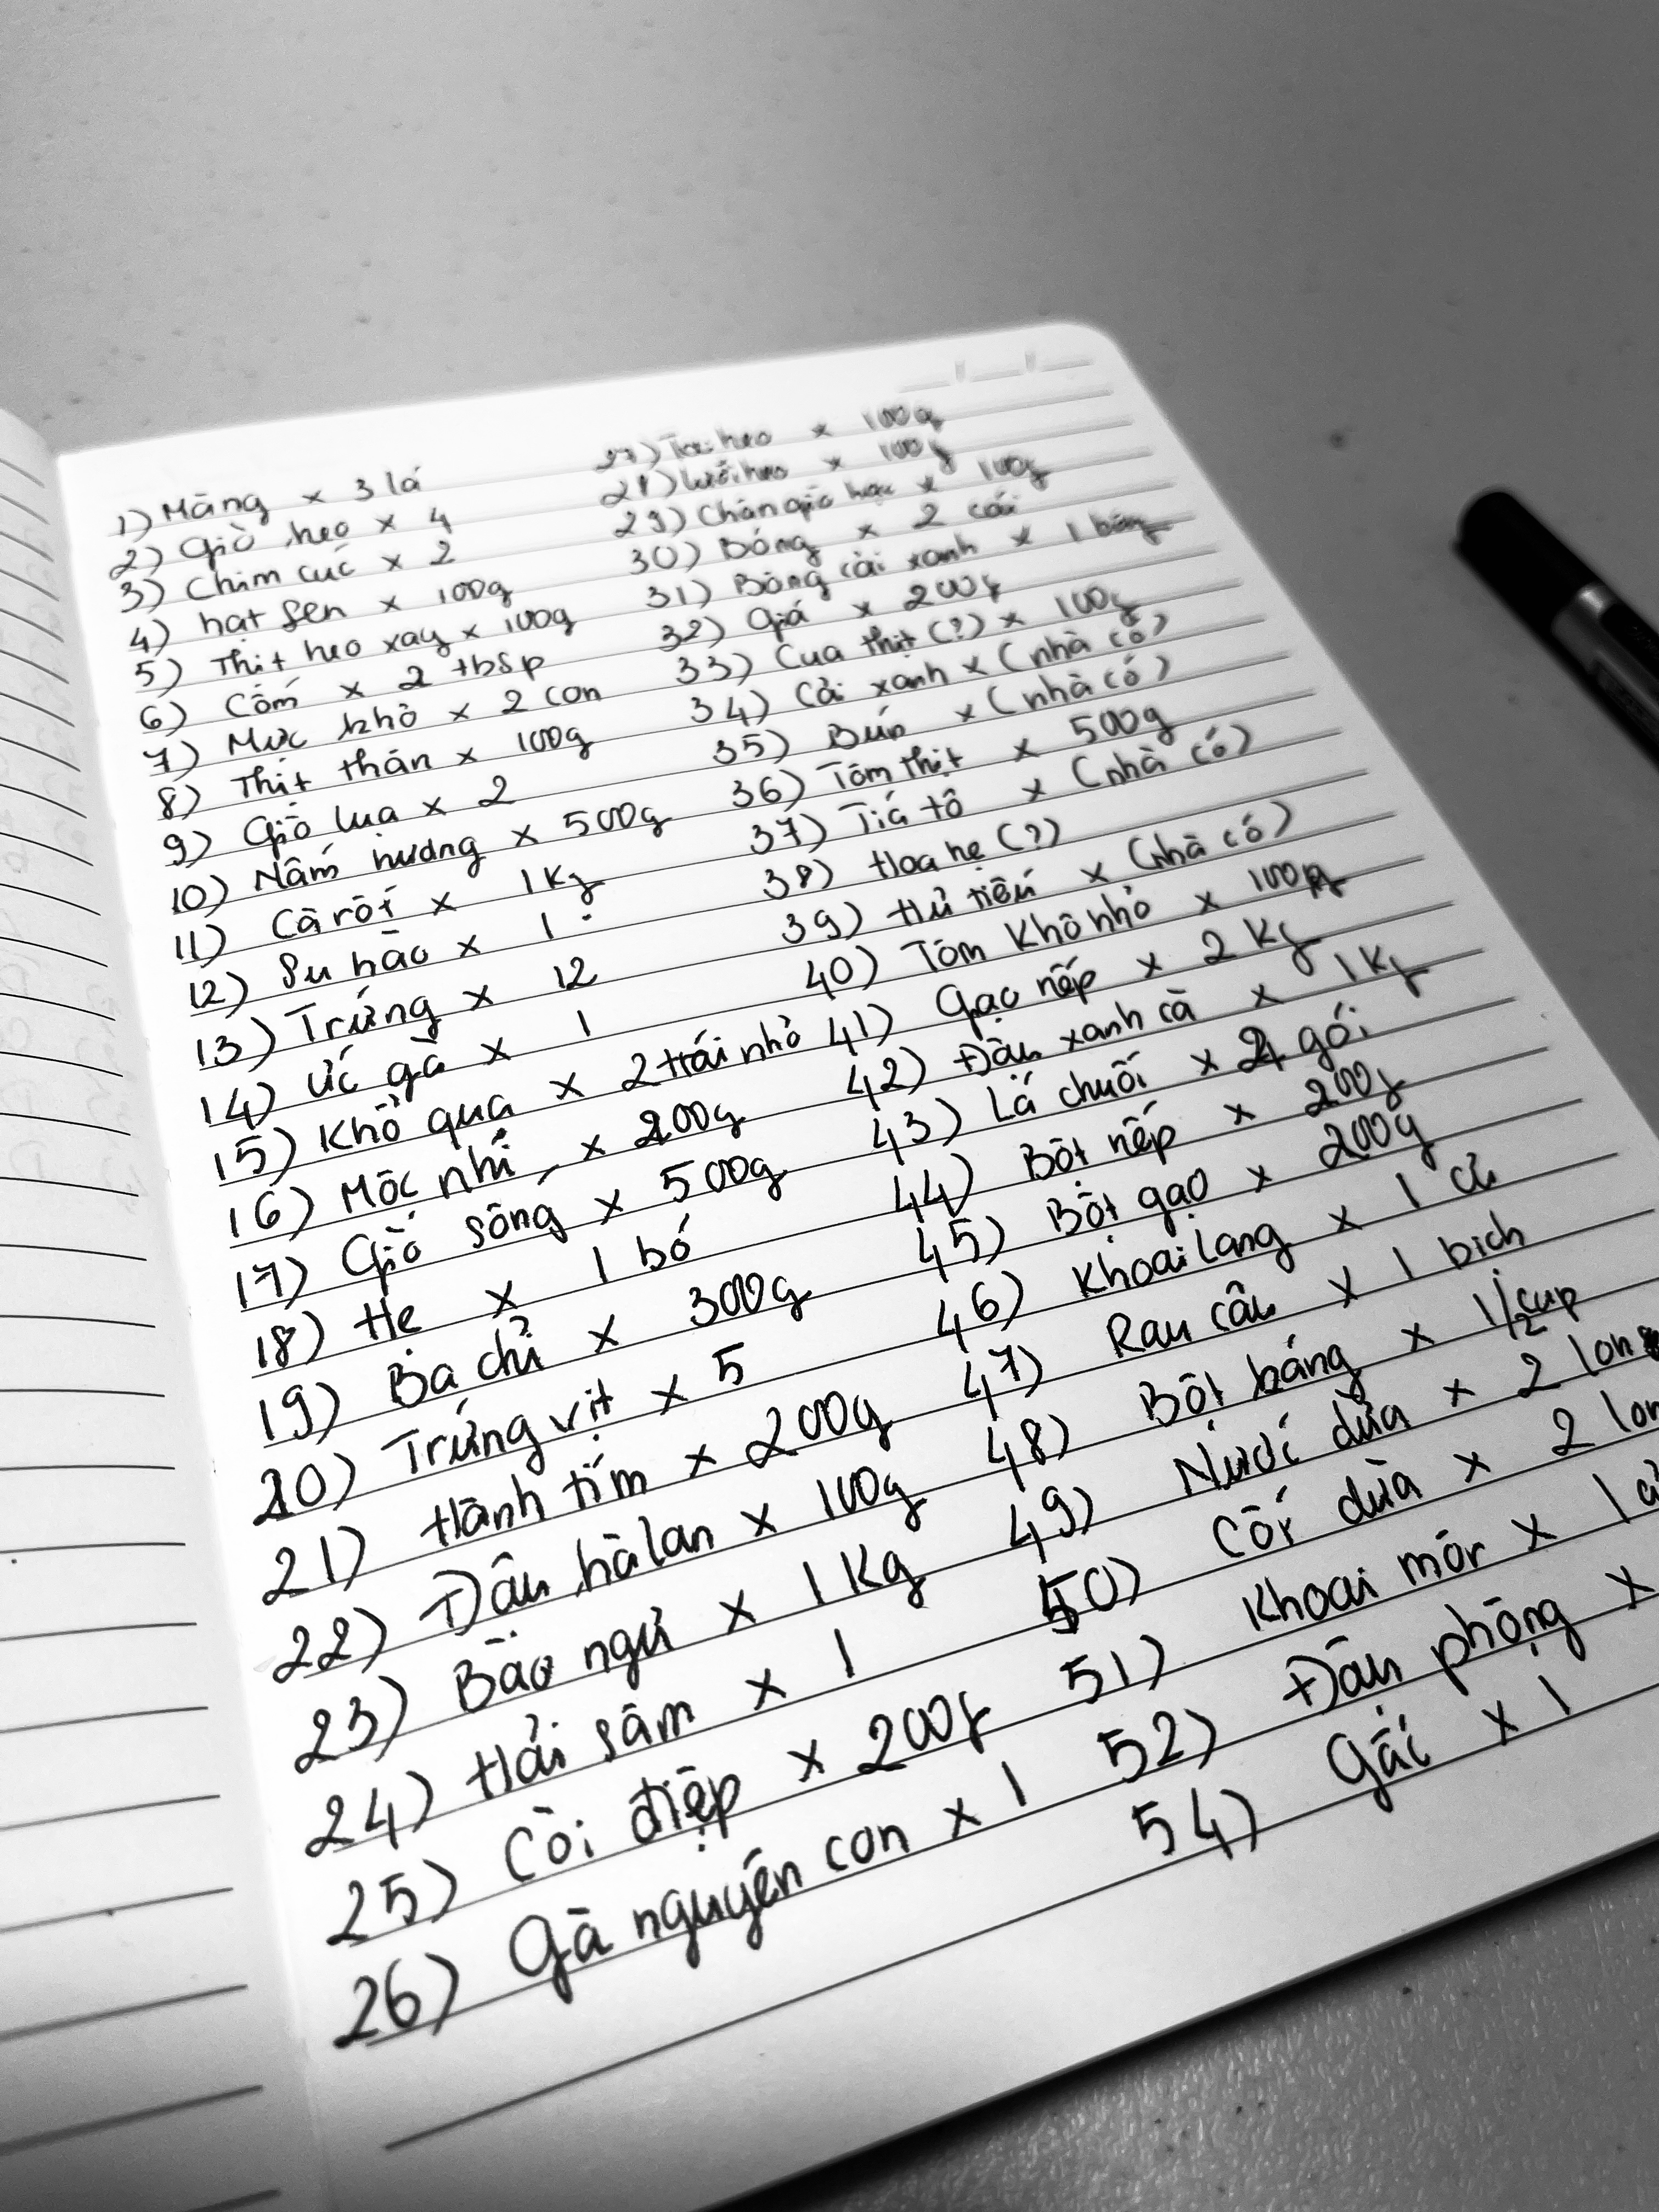 1) Măng x 3 lá
2) Giò heo x 4
3) Chim cúc x 2
4) hạt sen x 100g
5) Thịt heo xay x 100g
6) Cốm x 2 tbsp
7) Mực khô x 2 con
8) Thịt thăn x 100g
9) Giò lụa x 2
10) Nấm hương x 500g
11) Cà rốt x 1kg
12) Su hào x 1
13) Trứng x 12
14) Ức gà x 1
15) Khổ qua x 2 trái nhỏ
16) Mộc nhĩ x 200g
17) Giò sống x 500g
18) Hẹ x 1 bó
19) Ba chỉ x 300g
20) Trứng vịt x 5
21) Hành tím x 200g
22) Đậu hà lan x 100g
23) Bào ngư x 1kg
24) Hải sâm x 1
25) Còi điệp x 200g
26) Gà nguyên con x 1
27) Tai heo x 100g
28) Lưỡi heo x 100g
29) Chân giò heo x 100g
30) Bóng x 2 cái
31) Bông cải xanh x 1 bông
32) Giá x 200g
33) Cua thịt (?) x 100g
34) Cải xanh x (nhà có)
35) Bún x (nhà có)
36) Tôm thịt x 500g
37) Tiá tô x (nhà có)
38) Hoa hẹ (?)
39) Hủ tiếu x (nhà có)
40) Tôm khô nhỏ x 100g
41) Gạo nếp x 2 kg
42) Đậu xanh cà x 1 kg
43) Lá chuối x gói
44) Bột nếp x 200g
45) Bột gạo x 200g
46) Khoai lang x 1 củ
47) Rau câu x 1 bịch
48) Bột báng x 1/2 cup
49) Nước dừa x 2 lon
50) Cốt dừa x 2 lon
51) Khoai môr x 1
52) Đậu phộng x
54) Gấc x 1